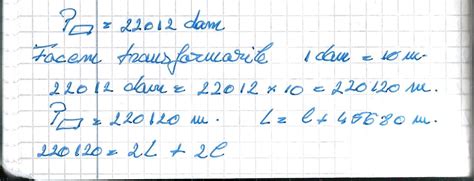 P▭ = 22012 dam
Facem transformarile 1 dam = 10 m.
22012 dam = 22012 × 10 = 220120 m.
P▭ = 220120 m. L = l + 45680 m.
220120 = 2L + 2l